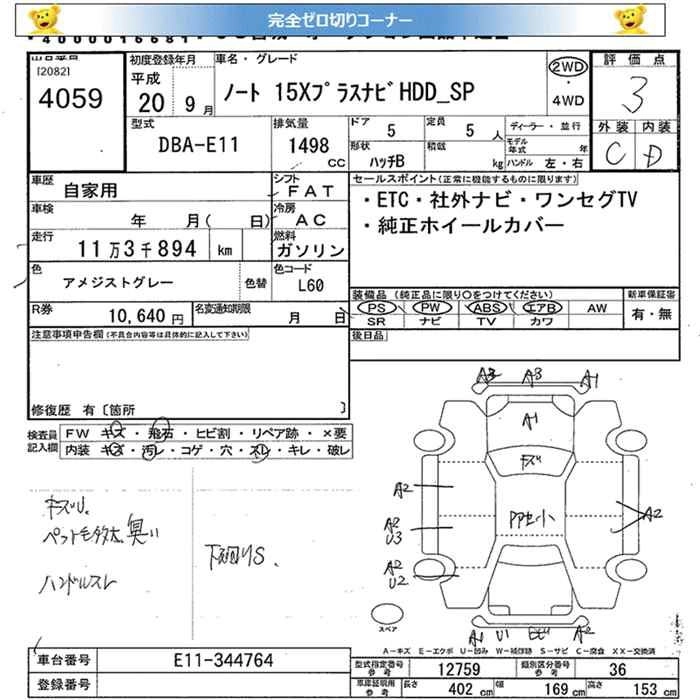 完全ゼロ切りコーナー
[2082]
4059
初度登録年月
平成
20 9月
車名・グレード
ノート 15XプラスナビHDD_SP
2WD
・
4WD
評価点
3
外装 内装
C D
型式
DBA-E11
排気量
1498
CC
ドア
5
定員
5 人
形状
ハッチB
積載
kg
ディーラー・並行
モデル年式 年
ハンドル 左・右
車歴
自家用
シフト
FAT
車検
年 月( 日)
冷房
AC
走行
11万3千894 km
燃料
ガソリン
色
アメジストグレー
色替
色コード
L60
R券
10,640 円
名変通知期限
月 日
セールスポイント(正常に機能するものに限ります)
・ETC・社外ナビ・ワンセグTV
・純正ホイールカバー
装備品 (純正品に限り○をつけてください)
PS PW ABS エアB AW
SR ナビ TV カワ
新車保証書
有・無
後日品
注意事項申告欄(不具合内容等は具体的に記入して下さい)
修復歴 有〔箇所 〕
検査員
記入欄
FW キズ・飛石・ヒビ割・リペア跡・×要
内装 キズ・汚レ・コゲ・穴・スレ・キレ・破レ
キズU.
ペット毛多大.臭い
ハンドルスレ
下廻りS.
A3 A3 A1
A1
キズ
A2
A2
U3
A2
U2
A2
A1 U1 A2
スペア
A-キズ E-エクボ U-凹み W-補修跡 S-サビ C-腐食 XX-交換済
車台番号
E11-344764
登録番号
型式指定番号
参考
12759
類別区分番号
参考
36
車庫証明用
参考
長さ 402 cm
幅 169 cm
高さ 153 cm